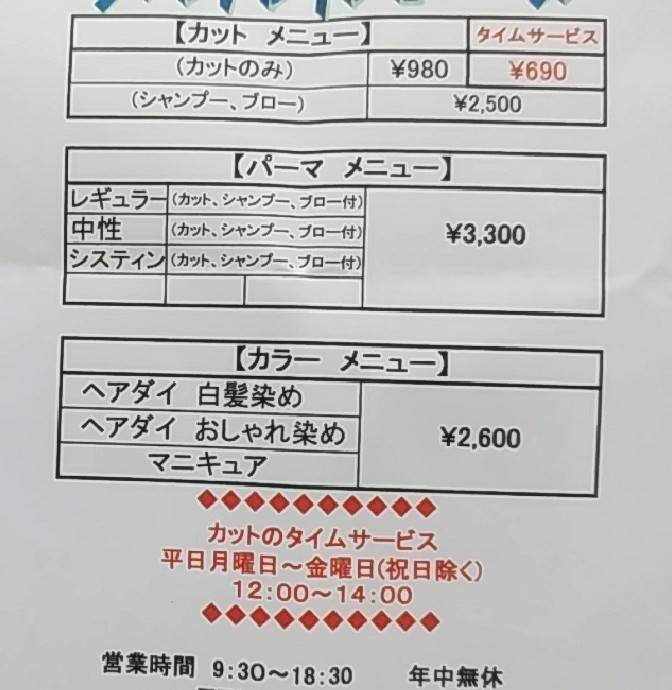 【カット メニュー】 タイムサービス
(カットのみ) ¥980 ¥690
(シャンプー、ブロー) ¥2,500
【パーマ メニュー】
レギュラー (カット、シャンプー、ブロー付)
中性 (カット、シャンプー、ブロー付) ¥3,300
システィン (カット、シャンプー、ブロー付)
【カラー メニュー】
ヘアダイ 白髪染め
ヘアダイ おしゃれ染め ¥2,600
マニキュア
カットのタイムサービス
平日月曜日～金曜日(祝日除く)
12:00～14:00
営業時間 9:30～18:30 年中無休